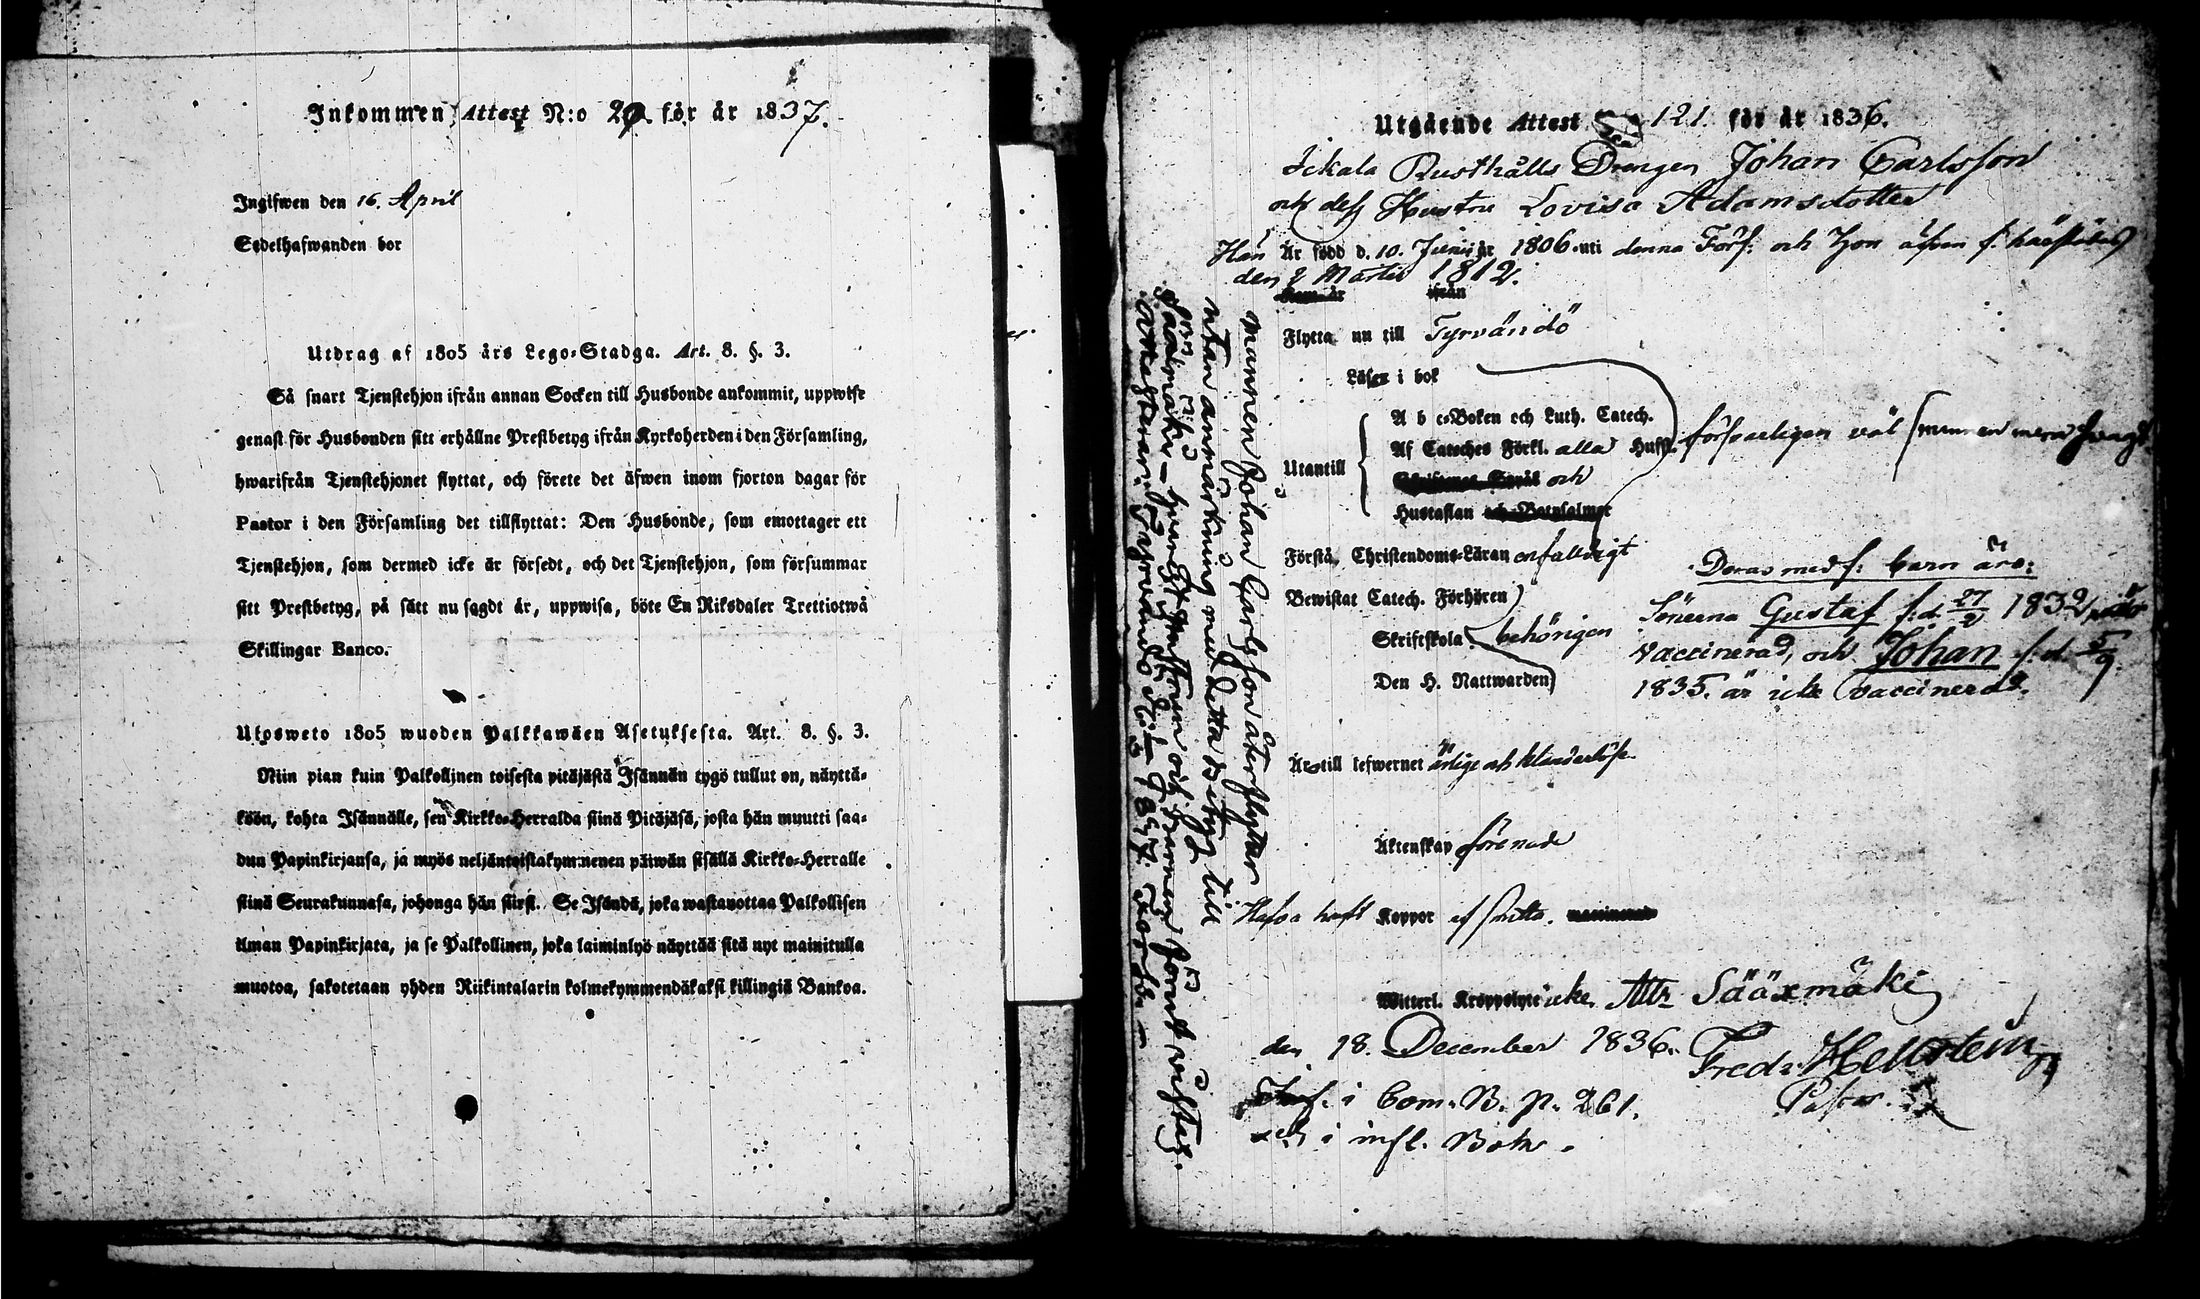 Inkommen Attest N:o 29. för år 1837.
Ingifwen den 16. April
Sedelhafwanden bor
Utdrag af 1805 års Lego-Stadga. Art. 8. §. 3.
Så snart Tjenstehjon ifrån annan Socken till Husbonde ankommit, uppwise
genast för Husbonden sitt erhållne Prestbetyg ifrån Kyrkoherden i den Församling,
hwarifrån Tjenstehjonet flyttat, och förete det äfwen inom fjorton dagar för
Pastor i den Församling det tillflyttat: Den Husbonde, som emottager ett
Tjenstehjon, som dermed icke är försedt, och det Tjenstehjon, som försummar
sitt Prestbetyg, på sätt nu sagdt är, uppwisa, böte En Riksdaler Trettiotwå
Skillingar Banco.
Ulosweto 1805 wuoden Palkkawäen Asetuksesta. Art. 8. §. 3.
Niin pian kuin Palkollinen toisesta pitäjästä Isännän tygö tullut on, näyttä-
köön, kohta Isännälle, sen Kirkko-Herralda siinä Pitäjäsä, josta hän muutti saa-
dun Papinkirjansa, ja myös neljäntoistakymmenen päiwän sisällä Kirkko-Herralle
siinä Seurakunnasa, johonga hän siirsi. Se Isändä, joka wastanottaa Palkollisen
ilman Papinkirjata, ja se Palkollinen, joka laiminlyö näyttää sitä nyt mainitulla
muotoa, sakotetaan yhden Riikintalarin kolmekymmendäkaksi killingiä Bankoa.
Utgående Attest 121. för år 1836.
Ickala Rusthålls Drengen Johan Carlsson
och dess Hustru Lovisa Adamsdotter
Han Är född d. 10. Junii år 1806. uti denna Förs: och Hon äfven f:
den 2 Martii 1812.
Kom år ifrån
Flytta nu till Tyrvändö
Läser i bok
A b c-Boken och Luth. Catech.
Utantill Af Cateches Förkl. alla Husfl. försvarligen väl
och
Hustaflan och Botpsalmer
Förstå Christendoms-Läran enfalldigt
Deras med f: barn äro:
Bewistat Catech. Förhören
Sönerna Gustaf f: d. 27/2 1832
Skriftskola behörigen
vaccinerad, och Johan f. d. 5/9.
Den H. Nattwarden
1835. är icke vaccinerad.
Äro till lefwernet ärlige och klanderlöse
Äktenskap förenade
Hafva haft Koppor
Witterl. Kroppslyte icke. Att: Sääxmäki
den 18. December 1836. Fredr. Hellstein
Pastor.
i Com. B. p. 261.
och i infl. Bok.
Mannen Johan Carlsson återflyttar
utan anmärkning med detta Betyg till
Sääxmäki
Attesterar Tyrvändö 1837.